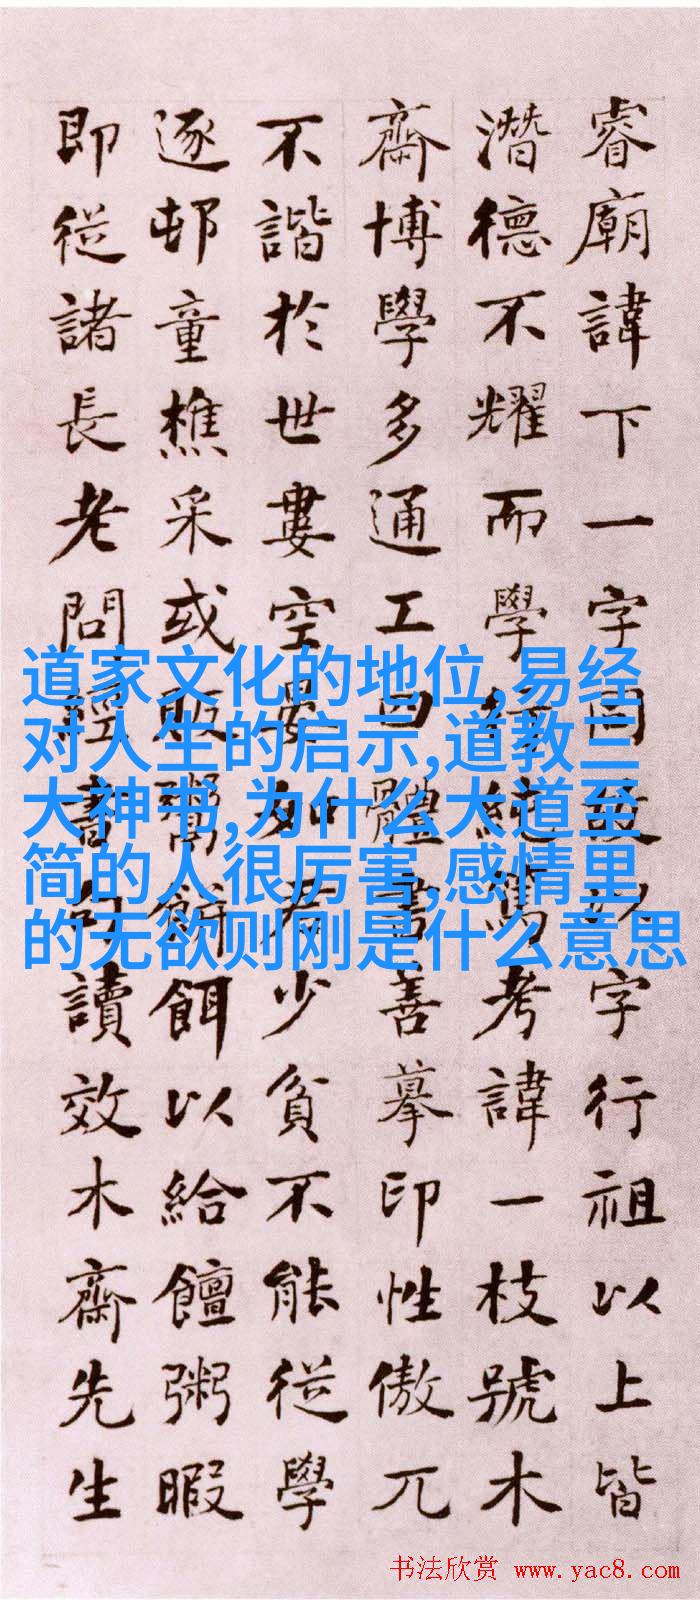 睿廟諱下一字以字行祖以上皆
潛德不耀而學行純篤考諱一枝號木
齋博學多通工四體書善摹印性傲兀
不諧於世婁空晏如君少貧不能從學
逐邨童樵采或販鬻餅餌以給饘粥暇
即從諸長老問經書句讀效木齋先生
道家文化的地位,易经
对人生的启示,道教三
大神书,为什么大道至
简的人很厉害,感情里
的无欲则刚是什么意思
书法欣赏 www.yac8.com